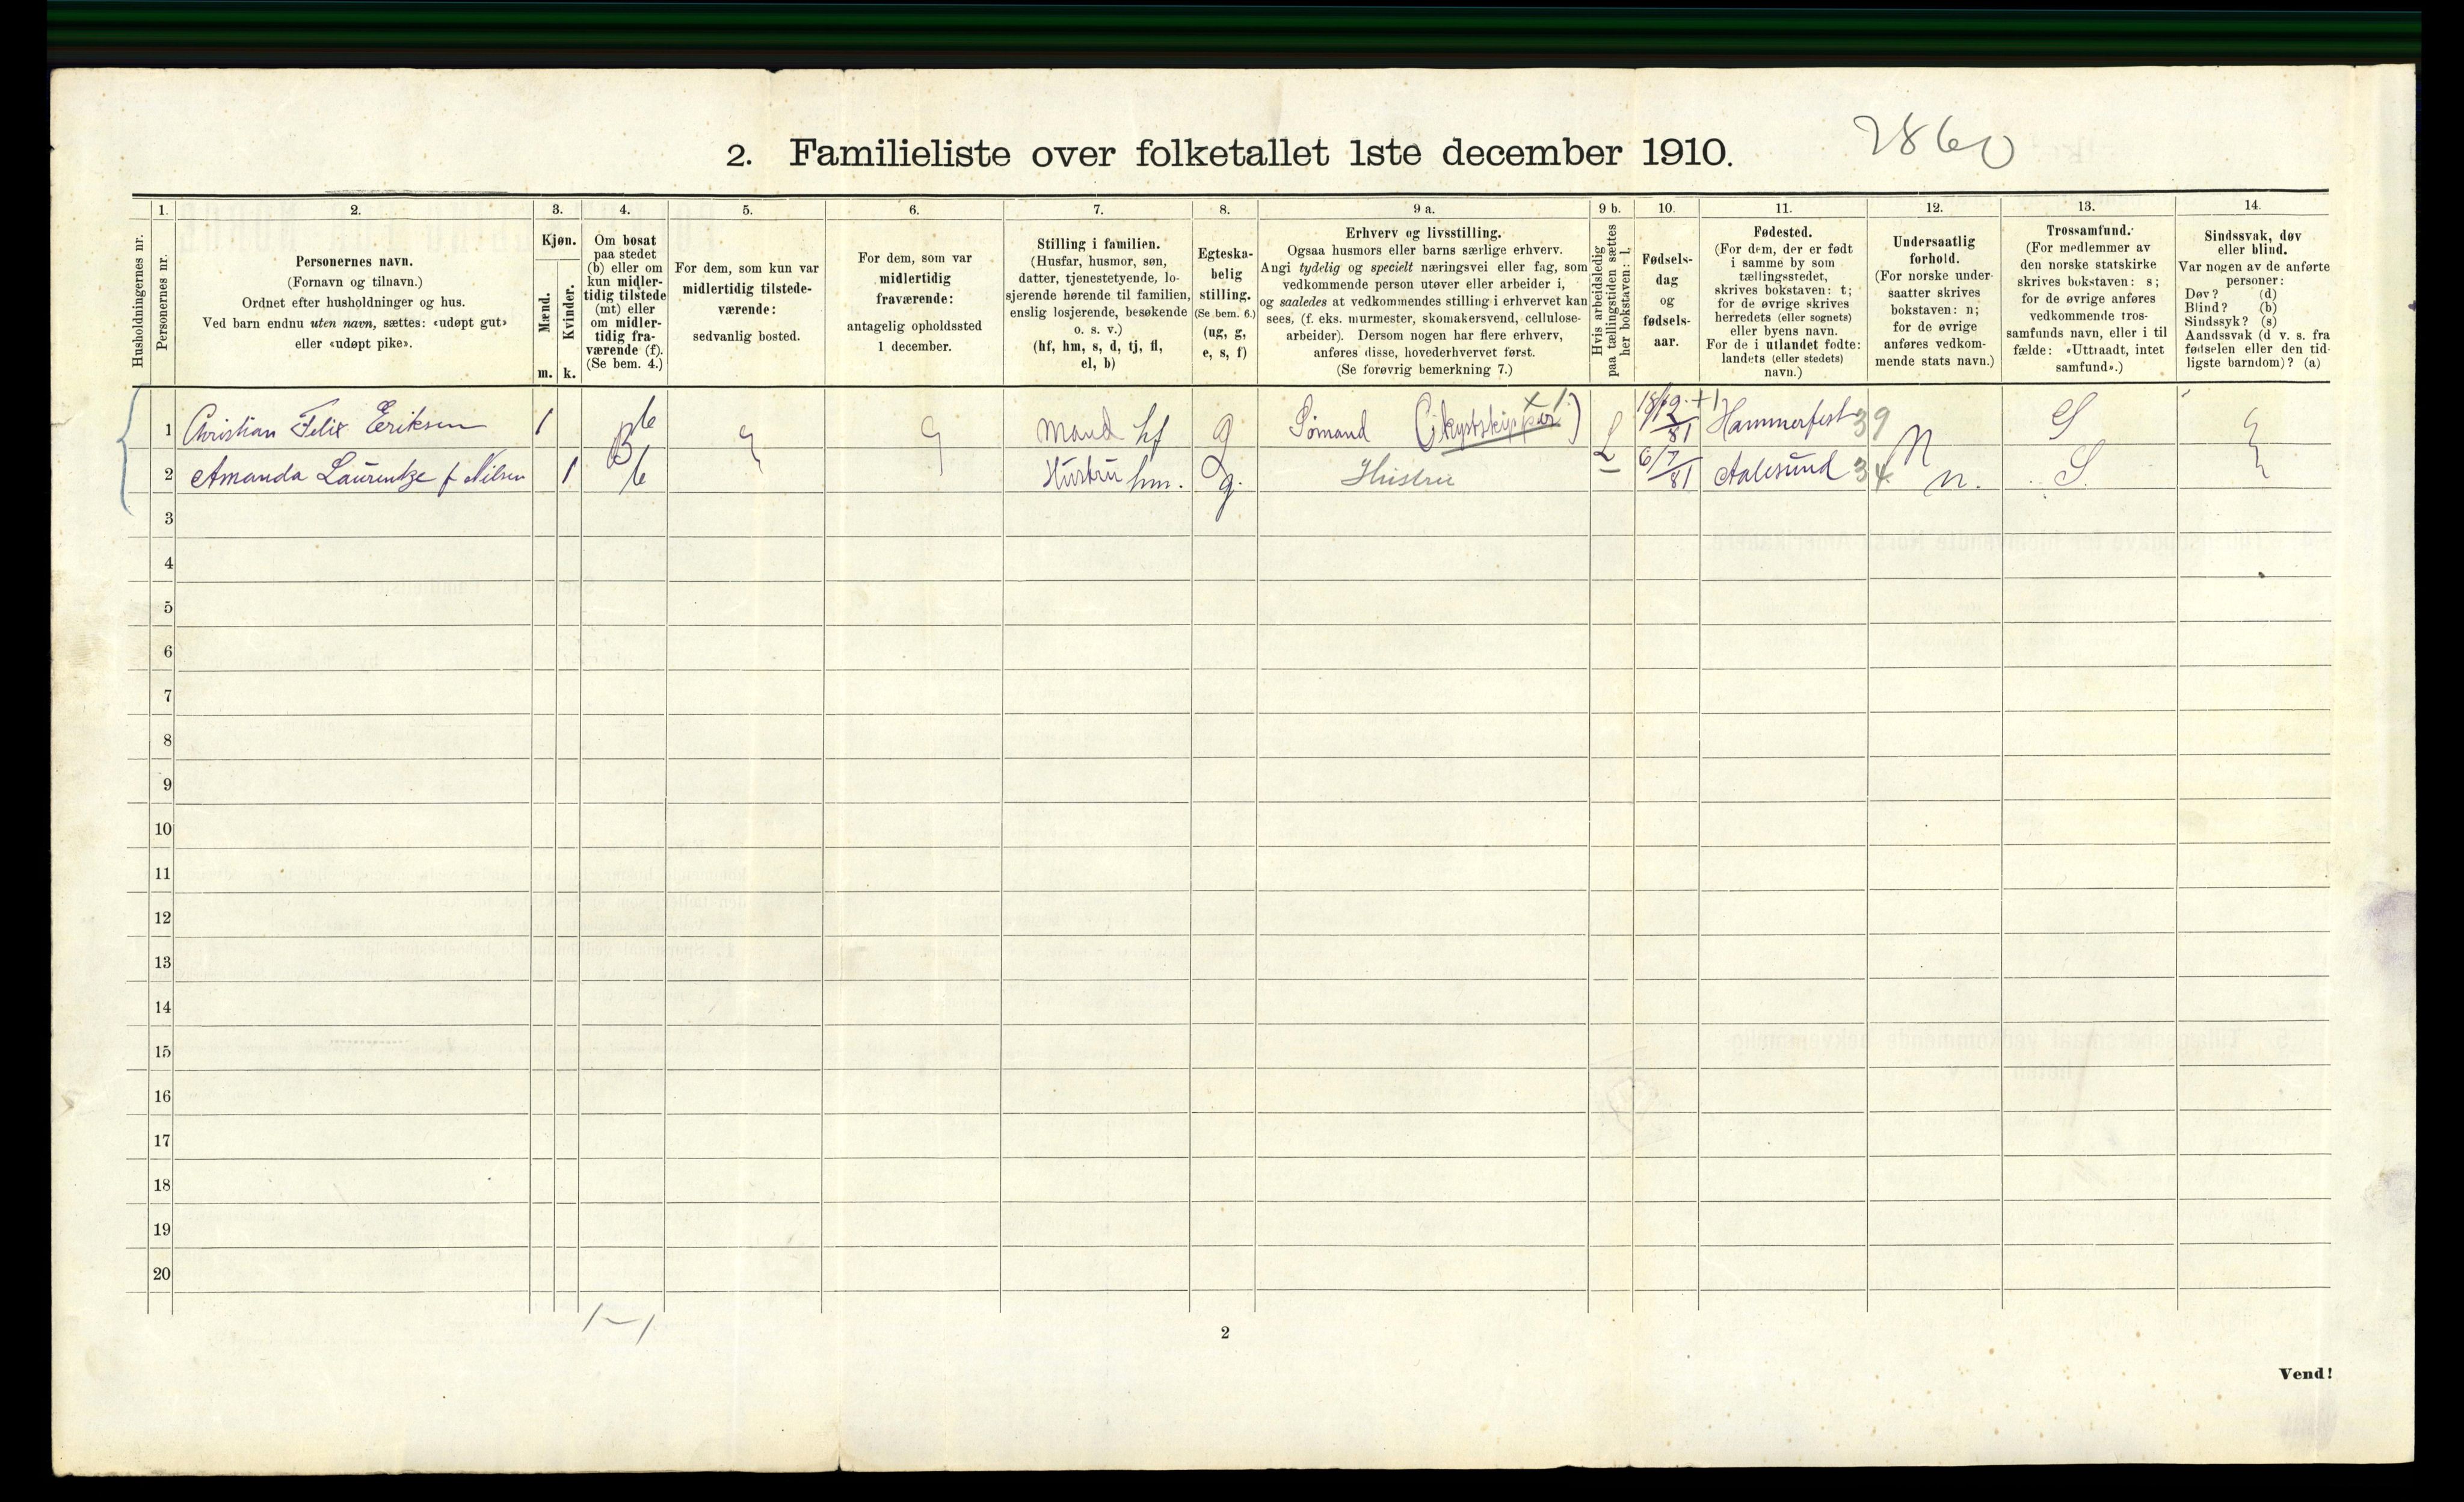 2. Familieliste over folketallet 1ste december 1910. 2860
Husholdningernes nr.
1.
Personernes nr.
2.
Personernes navn.
(Fornavn og tilnavn.)
Ordnet efter husholdninger og hus.
Ved barn endnu uten navn, sættes: «udøpt gut»
eller «udøpt pike».
3.
Kjøn.
Mænd.
Kvinder.
m. k.
4.
Om bosat
paa stedet
(b) eller om
kun midler-
tidig tilstede
(mt) eller
om midler-
tidig fra-
værende (f).
(Se bem. 4.)
5.
For dem, som kun var
midlertidig tilstede-
værende:
sedvanlig bosted.
6.
For dem, som var
midlertidig
fraværende:
antagelig opholdssted
1 december.
7.
Stilling i familien.
(Husfar, husmor, søn,
datter, tjenestetyende, lo-
sjerende hørende til familien,
enslig losjerende, besøkende
o. s. v.)
(hf, hm, s, d, tj, fl,
el, b)
8.
Egteska-
belig
stilling.
(Se bem. 6.)
(ug, g,
e, s, f)
9 a.
Erhverv og livsstilling.
Ogsaa husmors eller barns særlige erhverv.
Angi tydelig og specielt næringsvei eller fag, som
vedkommende person utøver eller arbeider i,
og saaledes at vedkommendes stilling i erhvervet kan
sees, (f. eks. murmester, skomakersvend, cellulose-
arbeider). Dersom nogen har flere erhverv,
anføres disse, hovederhvervet først.
(Se forøvrig bemerkning 7.)
9 b.
Hvis arbeidsledig
paa tællingstiden sættes
her bokstaven: l.
10.
Fødsels-
dag
og
fødsels-
aar.
11.
Fødested.
(For dem, der er født
i samme by som
tællingsstedet,
skrives bokstaven: t;
for de øvrige skrives
herredets (eller sognets)
eller byens navn.
For de i utlandet fødte:
landets (eller stedets)
navn.)
12.
Undersaatlig
forhold.
(For norske under-
saatter skrives
bokstaven: n;
for de øvrige
anføres vedkom-
mende stats navn.)
13.
Trossamfund.
(For medlemmer av
den norske statskirke
skrives bokstaven: s;
for de øvrige anføres
vedkommende tros-
samfunds navn, eller i til
fælde: «Uttraadt, intet
samfund».)
14.
Sindssvak, døv
eller blind.
Var nogen av de anførte
personer:
Døv? (d)
Blind? (b)
Sindssyk? (s)
Aandssvak (d v. s. fra
fødselen eller den tid-
ligste barndom)? (a)
1 Christian Felix Eriksen 1 B b Mand hf g Sømand (Kystskipper) L 18/12 81 Hammerfest 39 N S
2 Amanda Laurentze f Nilsen 1 b Hustru hm. g. Hustru 6/7 81 Aalesund 34 n. S.
3
4
5
6
7
8
9
10
11
12
13
14
15
16
17
18
19
20
1-1
2
Vend!